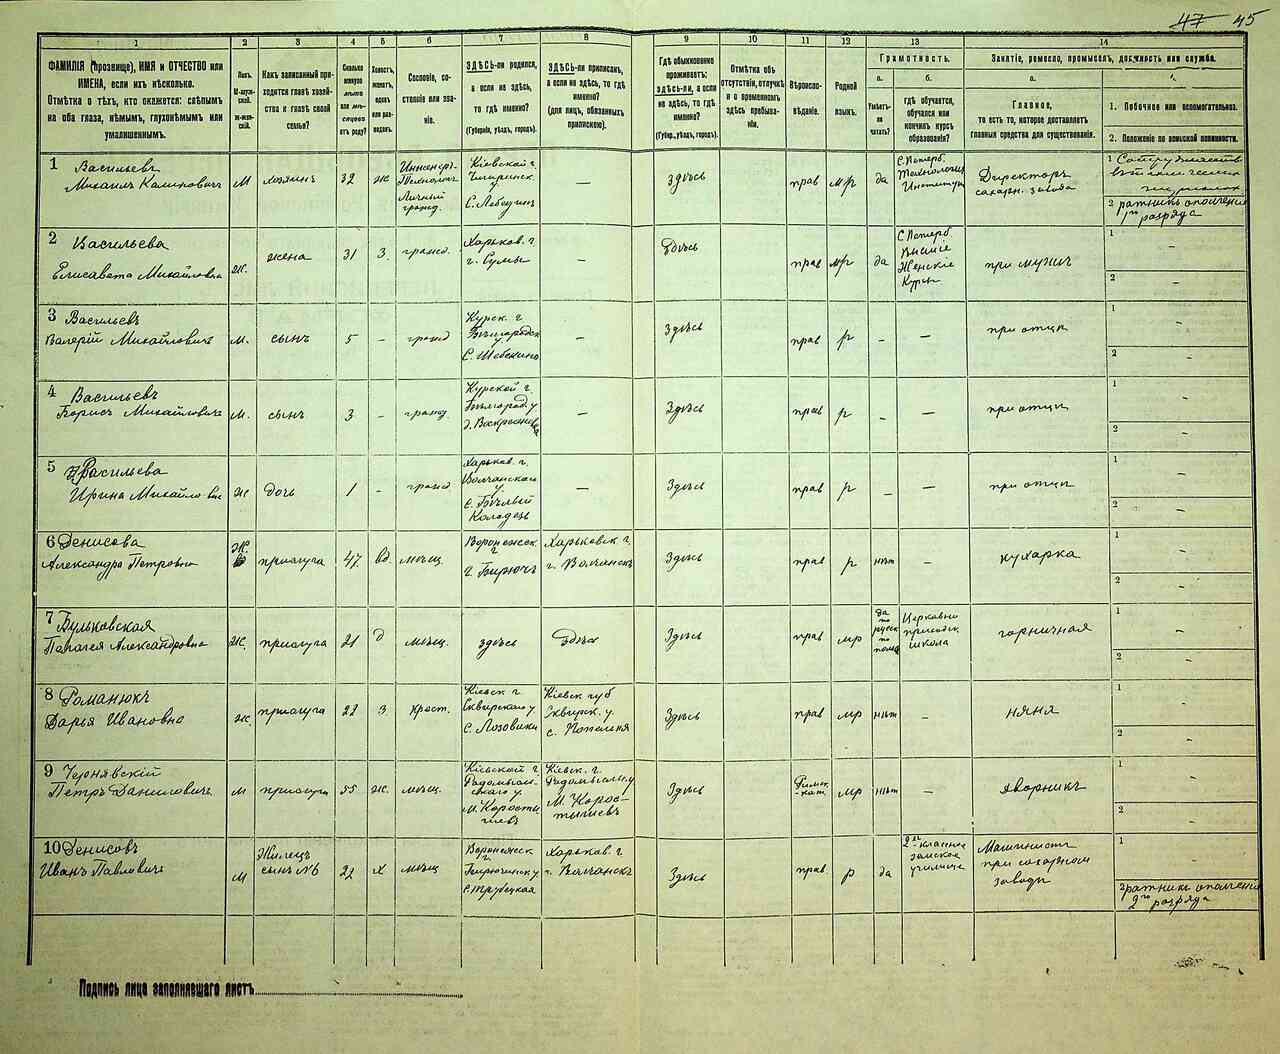 47 45
1 2 3 4 5 6 7 8 9 10 11 12 13 14
ФАМИЛІЯ (прозвище), ИМЯ и ОТЧЕСТВО или
ИМЕНА, если ихъ нѣсколько.
Отмѣтка о тѣхъ, кто окажется: слѣпымъ
на оба глаза, нѣмымъ, глухонѣмымъ или
умалишеннымъ.
Полъ.
М-мужской.
Ж-женскій.
Какъ записанный приходится
главѣ хозяйства
и главѣ своей
семьи?
Сколько
минуло
лѣтъ
или мѣсяцевъ
отъ роду?
Холостъ,
женатъ,
вдовъ
или разведенъ.
Сословіе, состояніе
или званіе.
ЗДѢСЬ-ли родился,
а если не здѣсь,
то гдѣ именно?
(Губернія, уѣздъ, городъ).
ЗДѢСЬ-ли приписанъ,
а если не здѣсь, то гдѣ
именно?
(для лицъ, обязанныхъ
припискою).
Гдѣ обыкновенно
проживаетъ:
здѣсь-ли, а если
не здѣсь, то гдѣ
именно?
(Губерн., уѣздъ, городъ).
Отмѣтка объ
отсутствіи, отлучкѣ
и о временномъ
здѣсь пребываніи.
Вѣроисповѣданіе.
Родной
языкъ.
Грамотность.
а.
Умѣетъ-ли
читать?
б.
гдѣ обучается,
обучался или
кончилъ курсъ
образованія?
Занятіе, ремесло, промыселъ, должность или служба.
а.
Главное,
то есть то, которое доставляетъ
главныя средства для существованія.
1. Побочное или вспомогательное.
2. Положеніе по воинской повинности.
1 Васильевъ
Михаилъ Калиновичъ
М
хозяинъ
32
ж
Инженеръ-
Технологъ
Личный
гражд.
Кіевской г
Чигиринск.
у
С. Лебединъ
—
здѣсь
прав
м/р
да
С.Петерб.
Технологич
Институт
Директоръ
сахарн. завода
1 Сотрудничество
въ технических
журналах
2 ратникъ ополченія
1го разряда
2 Васильева
Елисавета Михайловна
ж.
жена
31
з.
гражд.
Харьков. г
г. Сумы
—
Здѣсь
прав
м/р
да
С.Петерб.
Высшіе
Женскіе
Курсы
при мужѣ
1 -
2 -
3 Васильевъ
Валерій Михайловичъ
м.
сынъ
5
-
гражд
Курск. г
Бѣлгородск
у
С. Шебекино
—
Здѣсь
прав
р
-
-
при отцѣ
1 -
2 -
4 Васильевъ
Борисъ Михайловичъ
м.
сынъ
3
-
гражд.
Курской г.
Бѣлгород. у
—
Здѣсь
прав
р
-
-
при отцѣ
1 -
2 -
5 Васильева
Ирина Михайловна
ж
дочь
1
-
гражд
Харьков. г.
Волчанского
у
с. Бѣлый
Колодезь
—
Здѣсь
прав
р
-
-
при отцѣ
1 -
2 -
6 Денисова
Александра Петровна
Ж.
прислуга
47
вд.
мѣщ.
Воронежск.
г
г. Бирючъ
Харьковск г.
г. Волчанскъ
Здѣсь
прав
р
нѣт
-
кухарка
1 -
2 -
7 Бульковская
Пелагея Александровна
Ж.
прислуга
21
д
мѣщ.
здѣсь
Здѣсь
Здѣсь
прав
мр
да
по
русск
Церковно
приходск.
школа
горничная
1 -
2 -
8 Романюкъ
Дарья Ивановна
ж
прислуга
22
з.
крест.
Кіевск г
Сквирского у
С. Лозовики
Кіевск губ
Сквирск. у
с. Попельня
Здѣсь
прав
мр
нѣт
-
няня
1 -
2 -
9 Чернявскій
Петръ Даниловичъ
м
прислуга
55
ж.
мѣщ.
Кіевской г
Радомысль-
скаго у
М. Корости-
шевъ
Кіевск. г.
Радомысль у
М. Корос-
тышевъ
Здѣсь
Римск
-кат.
мр
нѣт
-
дворникъ
1 -
2 -
10 Денисовъ
Иванъ Павловичъ
м
Жилецъ
сынъ №6
22
х
мѣщ
Воронежск
г
Бирюченск у
с Трубецкая
Харьков. г
г. Волчанскъ
Здѣсь
прав.
р
да
2х-классное
земское
училище
Машинистъ
при сахарном
заводѣ
1 -
2 ратникъ ополченія
2го разряда
Подпись лица заполнявшаго листъ